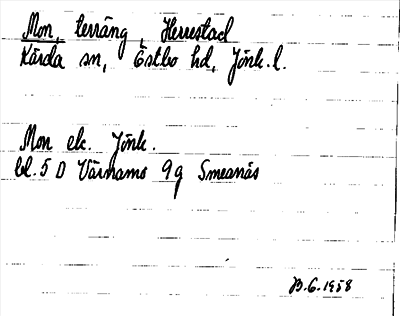 Mon, terräng, Herrestad
Kärda sn, Östbo hd, Jönk. l.
Mon ek. Jönk.
bl. 5 D Värnamo 9 g Smeanäs
B.G. 1958